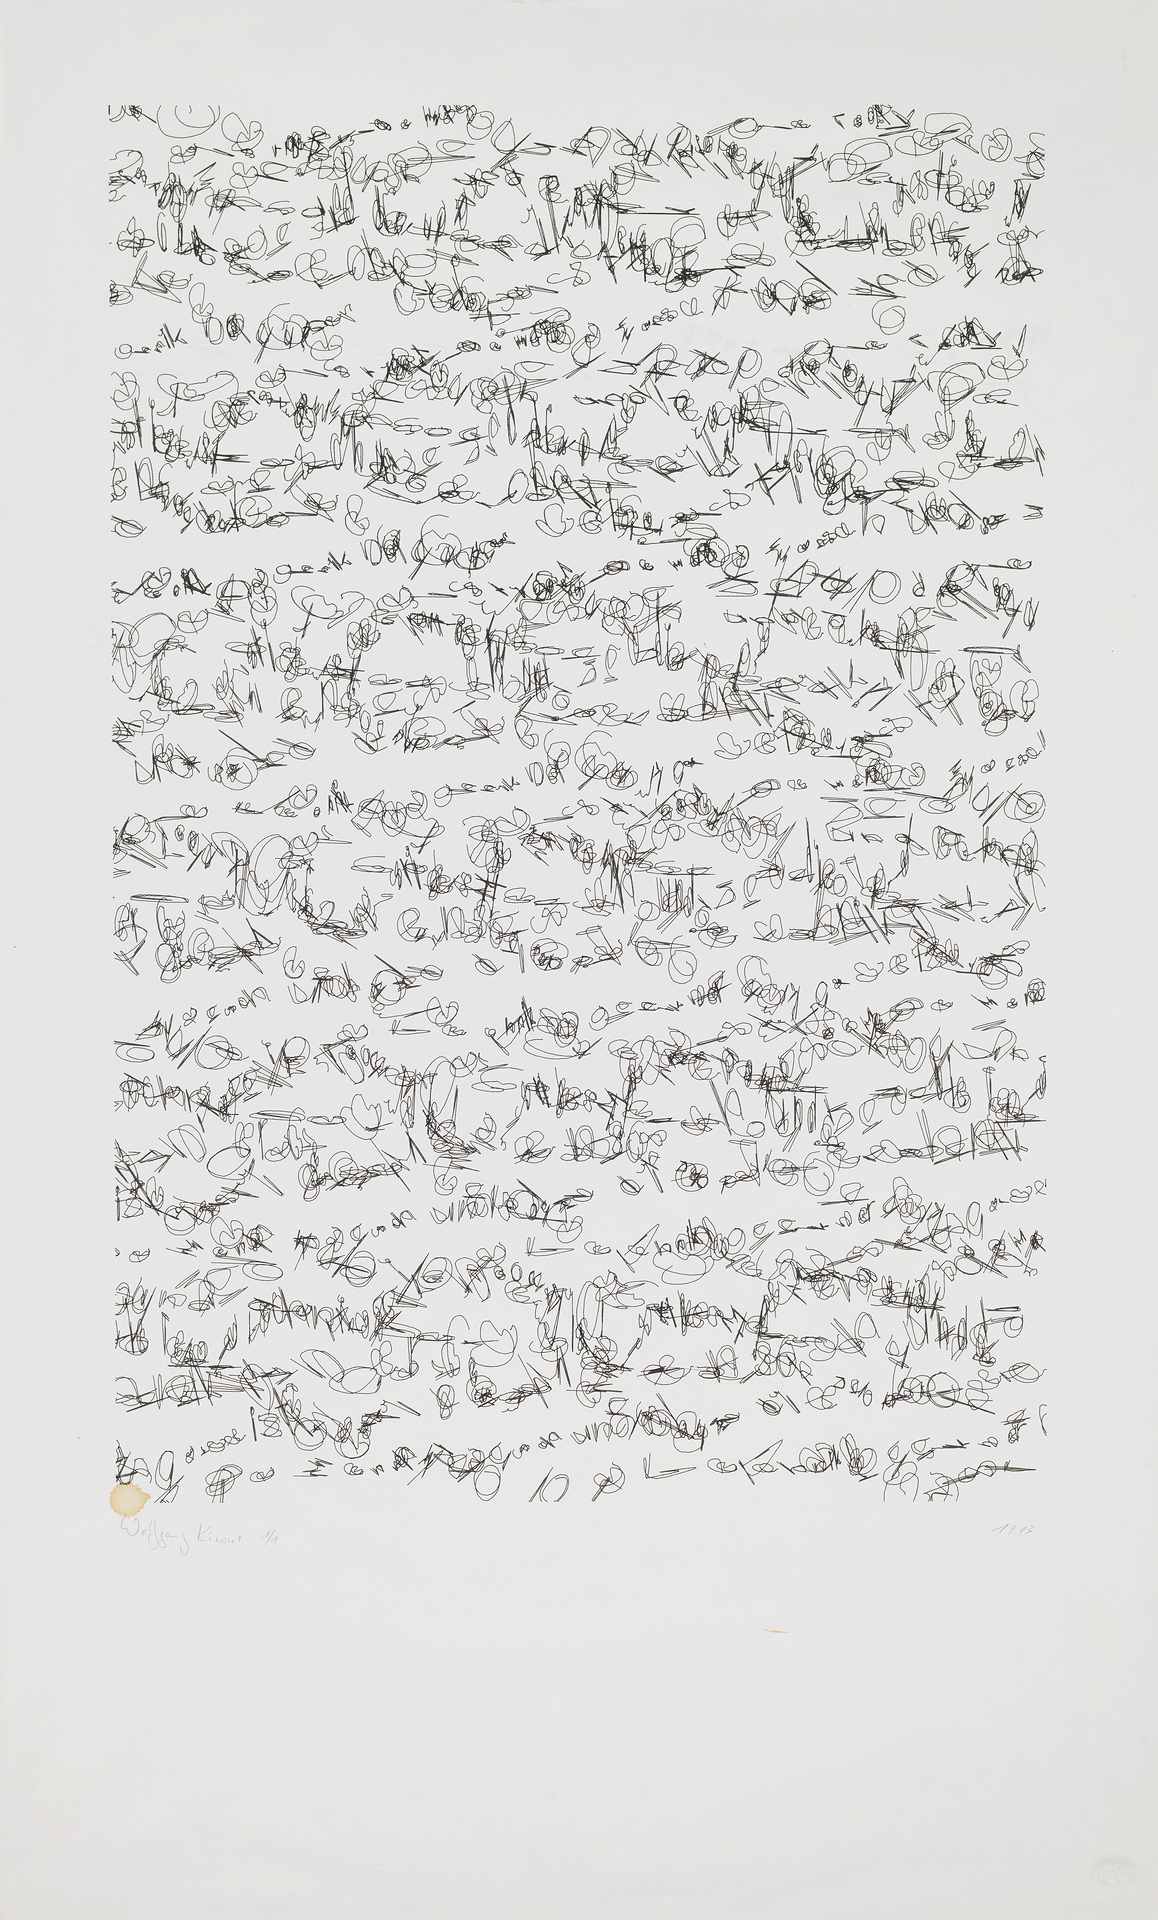 Wolfgang Kiwus 1/1 1993